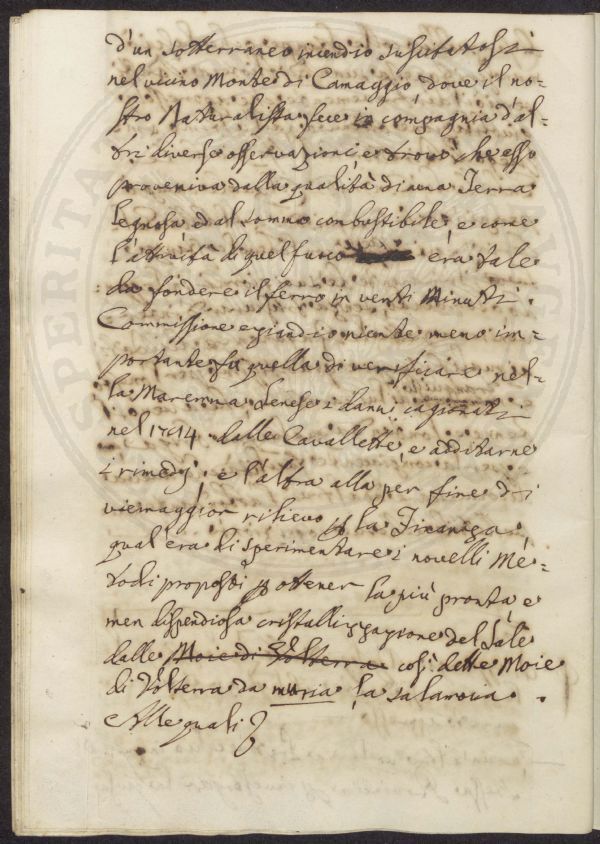 d'un sotterraneo incendio suscitatosi
nel vicino Monte di Camaggio, dove il no=
stro Naturalista fece in compagnia d'al=
tri diverse osservazioni, e trovò, che esso
proveniva dalla qualità di una Terra
legnosa, ed al sommo combustibile, e come
l'attività di quel fuoco era tale
da fondere il ferro in venti Minuti.
Commissione egiandio niente meno im=
portante fu quella di verificare nel=
la Maremma Senese i danni cagionati
nel 1714 dalle Cavallette, e additarne
i rimedj, e l'altra alla per fine di
viemaggior rilievo pr la
qual'era di sperimentare i novelli Me=
todi proposti pr ottener la più pronta e
men dispendiosa cristallizzazione del Sale
dalle Moie di Volterra così dette Moie
di Volterra da muria, la salamoia.
Alle quali